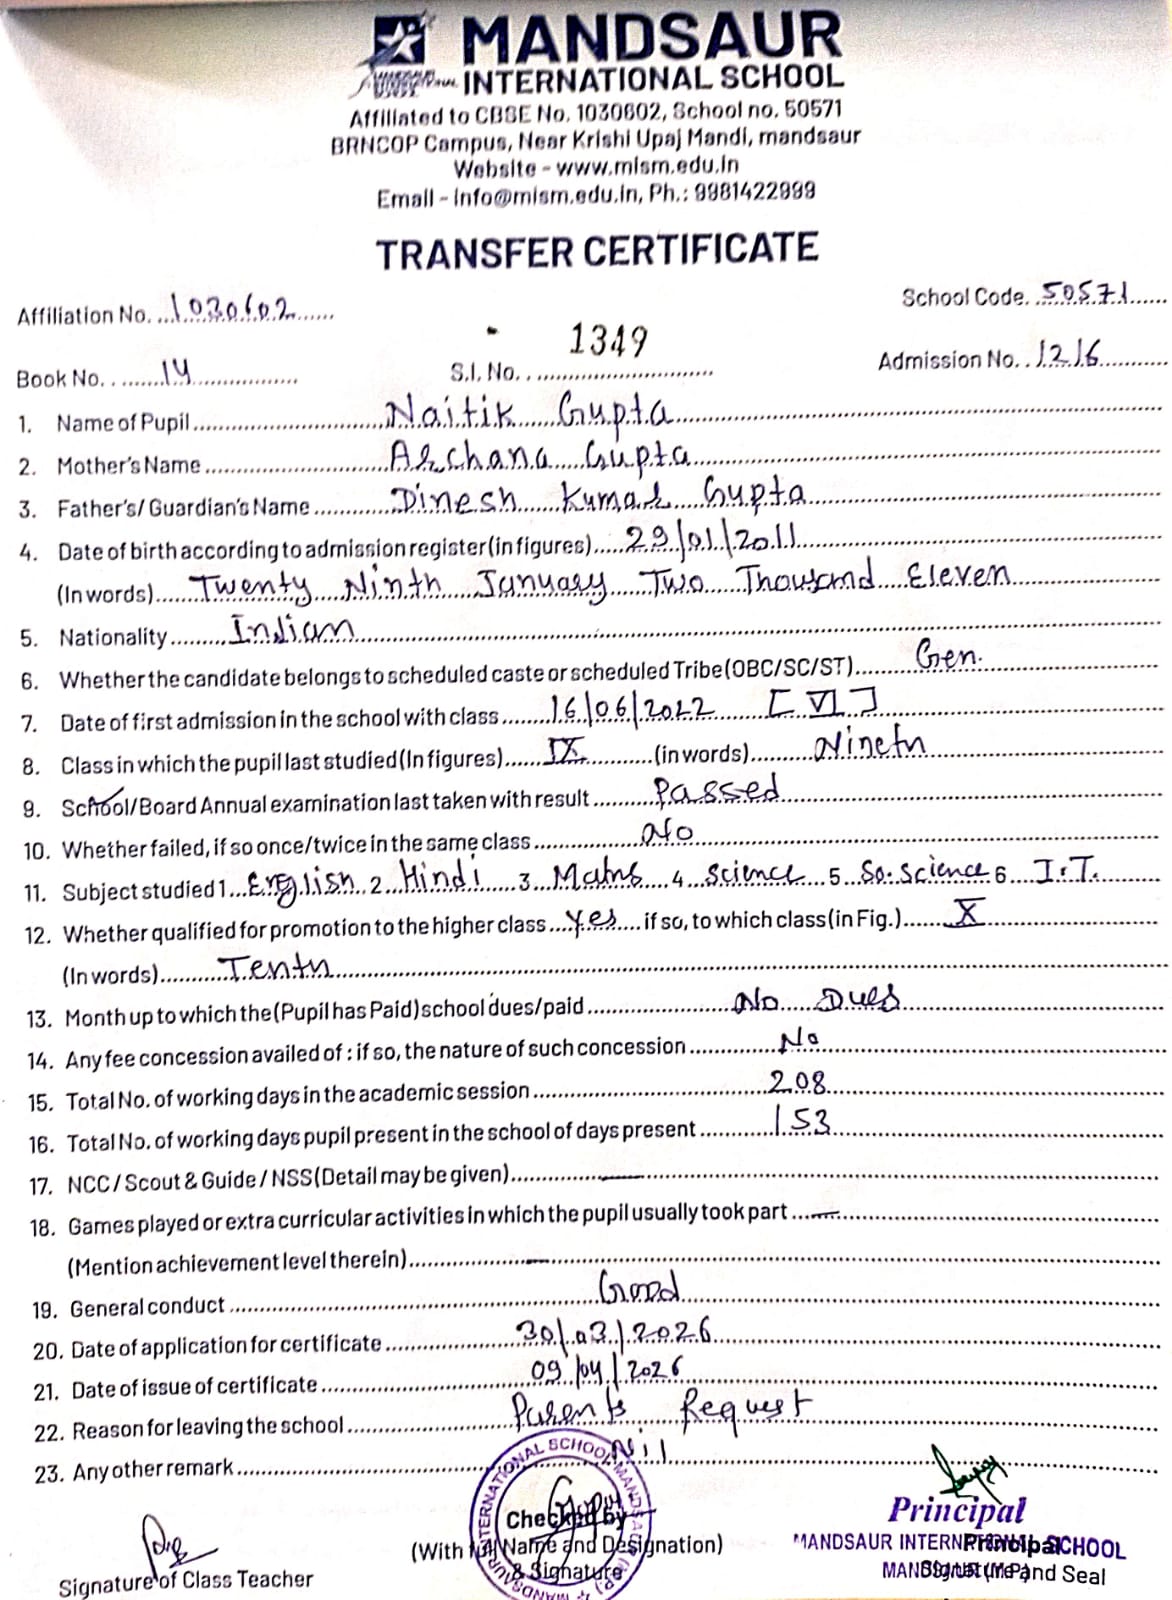 MANDSAUR
INTERNATIONAL SCHOOL
Affiliated to CBSE No. 1030602, School no. 50571
BRNCOP Campus, Near Krishi Upaj Mandi, mandsaur
Website - www.mism.edu.in
Email - info@mism.edu.in, Ph.: 9981422999
TRANSFER CERTIFICATE
Affiliation No. 1030602 School Code. 50571
Book No. 14 S.I. No. 1349 Admission No. 1216
1. Name of Pupil Naitik Gupta
2. Mother's Name Archana Gupta
3. Father's/ Guardian's Name Dinesh Kumar Gupta
4. Date of birth according to admission register (in figures) 29/01/2011
(In words) Twenty Ninth January Two Thousand Eleven
5. Nationality Indian
6. Whether the candidate belongs to scheduled caste or scheduled Tribe (OBC/SC/ST) Gen.
7. Date of first admission in the school with class 16/06/2022 [VI]
8. Class in which the pupil last studied (In figures) IX (in words) Nineth
9. School/Board Annual examination last taken with result Passed
10. Whether failed, if so once/twice in the same class No
11. Subject studied 1 English 2 Hindi 3 Maths 4 Science 5 So. Science 6 I.T.
12. Whether qualified for promotion to the higher class Yes if so, to which class (in Fig.) X
(In words) Tenth
13. Month up to which the (Pupil has Paid) school dues/paid No Dues
14. Any fee concession availed of : if so, the nature of such concession No
15. Total No. of working days in the academic session 208
16. Total No. of working days pupil present in the school of days present 153
17. NCC / Scout & Guide / NSS (Detail may be given)
18. Games played or extra curricular activities in which the pupil usually took part
(Mention achievement level therein)
19. General conduct Good
20. Date of application for certificate 30/03/2026
21. Date of issue of certificate 09/04/2026
22. Reason for leaving the school Parents Request
23. Any other remark Nil
Checked by
(With full Name and Designation)
& Signature
Signature of Class Teacher
Principal
MANDSAUR INTERNATIONAL SCHOOL
MANDSAUR (M.P.)
Principal
Signature and Seal
INTERNATIONAL SCHOOL MANDSAUR (M.P.)